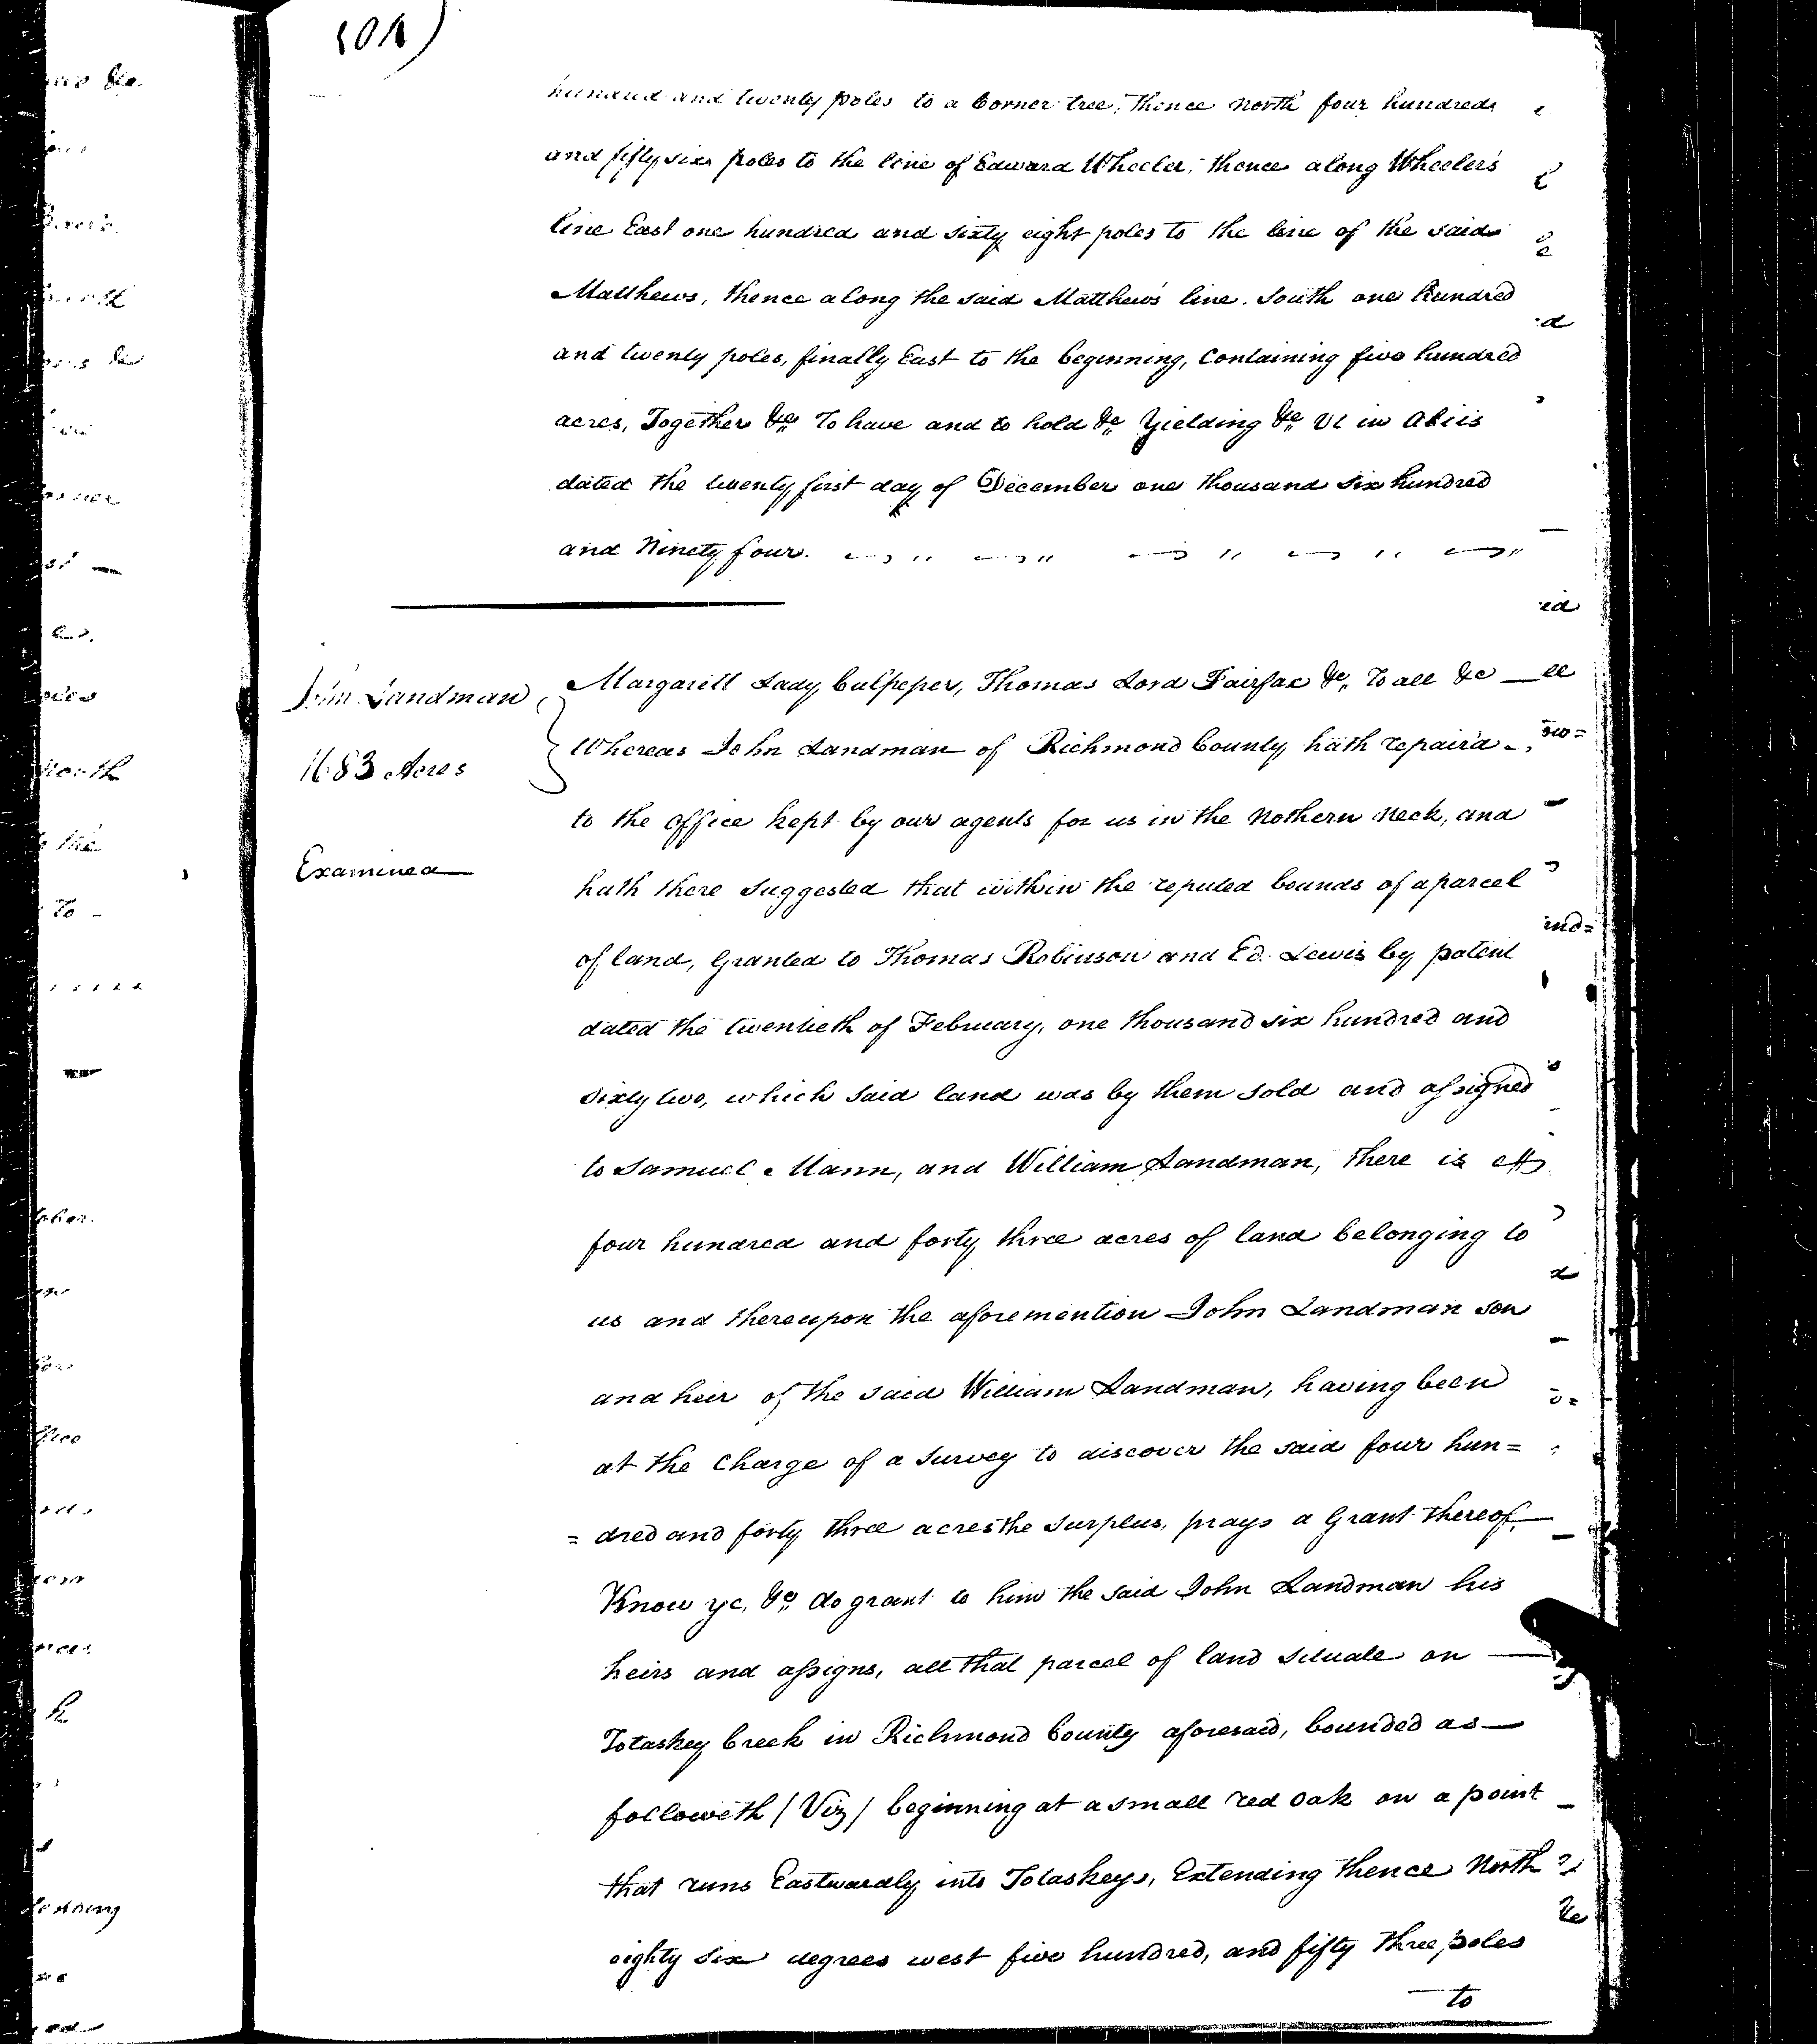 hundred and twenty poles to a Corner tree, thence north four hundred
and fifty six poles to the line of Edward Wheeler, thence along Wheeler's
line East one hundred and sixty eight poles to the line of the said
Matthews, thence along the said Matthew's line South one hundred
and twenty poles, finally East to the beginning, Containing five hundred
acres, Together &c To have and to hold &c Yielding &c Ut in Aliis
dated the twenty first day of December one thousand six hundred
and Ninety four.
John Landman
1683 Acres
Examined
Margarett Lady Culpeper, Thomas Lord Fairfax &c, To all &c
Whereas John Landman of Richmond County hath repair'd
to the office kept by our agents for us in the Nothern Neck, and
hath there suggested that within the reputed bounds of a parcel
of land, Granted to Thomas Robinson and Ed. Lewis by patent
dated the twentieth of February, one thousand six hundred and
sixty two, which said land was by them sold and assigned
to Samuel Mann, and William Landman, there is
four hundred and forty three acres of land belonging to
us and thereupon the aforemention John Landman son
and heir of the said William Landman, having been
at the Charge of a Survey to discover the said four hun=
=dred and forty three acres the Surplus, prays a Grant thereof
Know ye, &c do grant to him the said John Landman his
heirs and assigns, all that parcel of land Situate on
Totaskey Creek in Richmond County aforesaid, bounded as
followeth / Viz / beginning at a small red oak on a point
that runs Eastwardly into Totaskeys, Extending thence North
eighty six degrees west five hundred, and fifty three poles
to